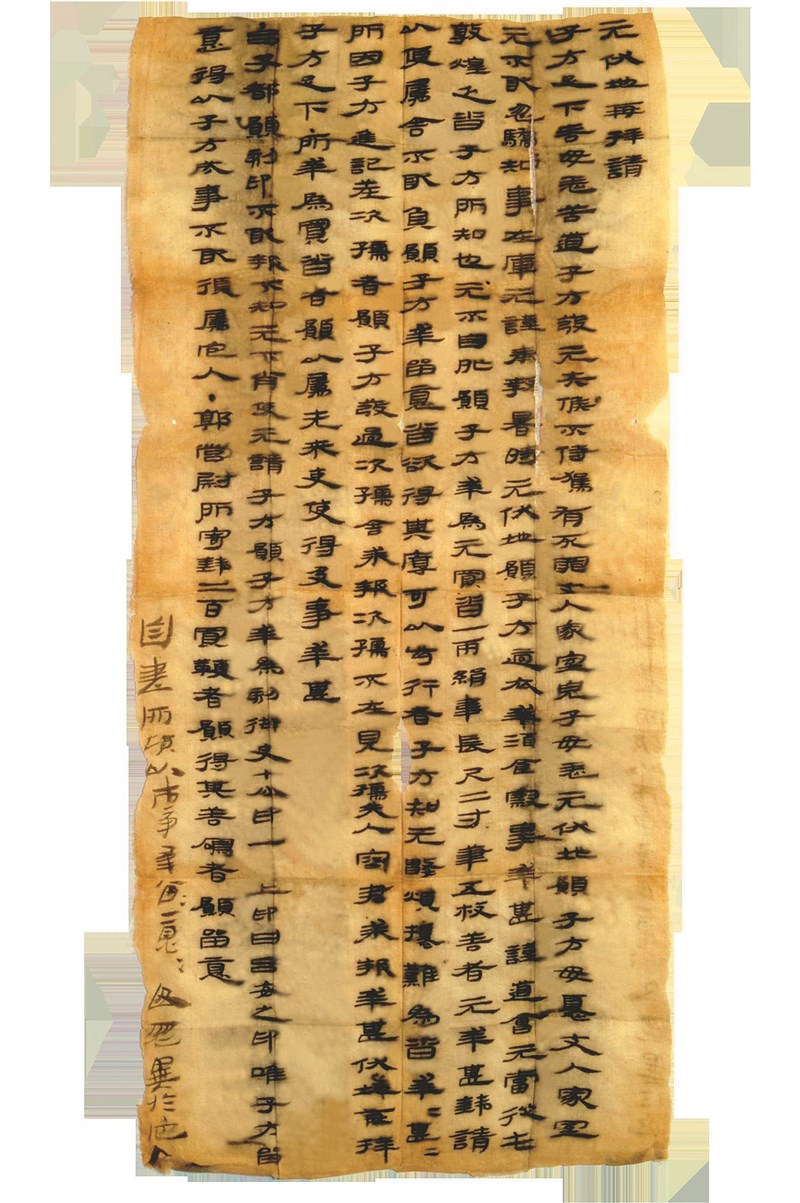 元伏地再拜請
子方足下善毋恙苦道子方發元失候不侍駕有死罪丈人家室兒子毋恙元伏地願子方毋憂丈人家室
元不敢忽驕知事在庫元謹奉教暑時元伏地願子方適衣幸酒食察事幸甚謹道會元當從屯
敦煌乏沓子方所知也元不自外願子方幸為元買沓一兩絹韋長尺二寸筆五枚善者元幸甚錢請
以便屬舍不敢負願子方幸留意沓欲得其厚可以步行者子方知元數煩擾難為沓幸=甚=
所因子方進記差次孺者願子方發過次孺舍求報次孺不在見次孺夫人容君求報幸甚伏地再拜
子方足下所幸為買沓者願以屬先來吏使得及事幸甚
・呂子都願刻印不敢報不知元不肖使元請子方願子方幸為刻御史七分印一龜上印曰呂安之印唯子方留
意得以子方成事不敢復屬它人・郭營尉所寄錢二百買鞭者願得其善鳴者願留意
自書所願以市事幸留=意=毋忽異於它人